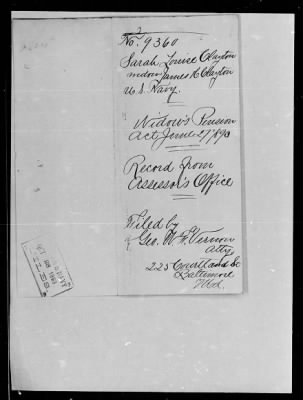 No. 9360
Sarah Louise Clayton
widow James H Clayton
U.S. Navy.
Widow's Pension
Act June 27/890
Record from
Assessor's Office
Filed by
Geo. M. F. Vernon
Atty
225 Courtland St
Baltimore
Md.